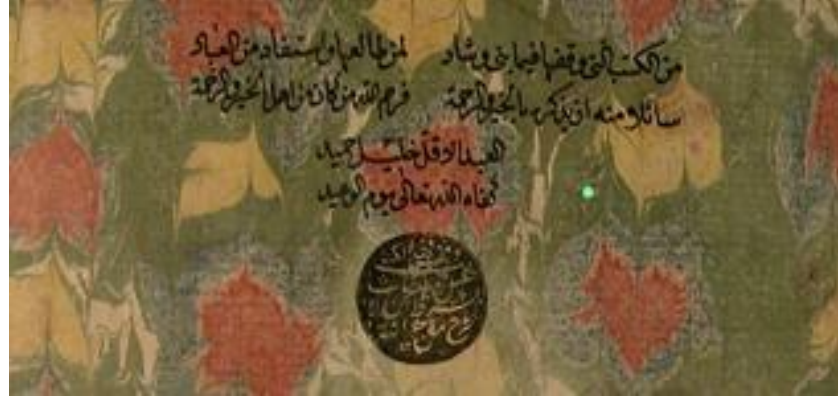 من الكتب التي وقفها فيما بنى وشاد لمن طالعها واستفاد من العباد
سائلا منه ان يذكره بالخير والرحمة فرحم الله من كان من اهل الخير والرحمة
العبد الاقل خليل حميد
كفاه الله تعالى يوم الوعيد